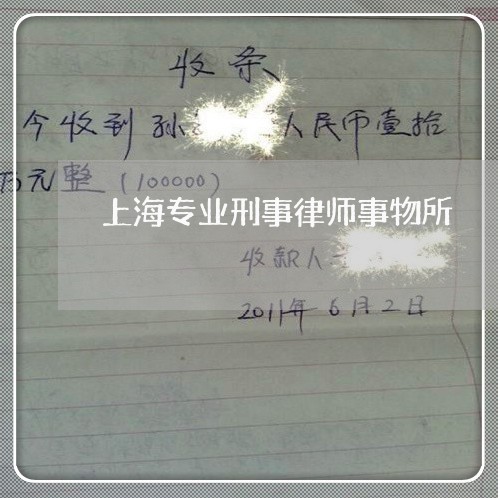 收条
今收到孙 人民币壹拾
万元整（100000）
上海专业刑事律师事物所
收款人
2011年6月2日